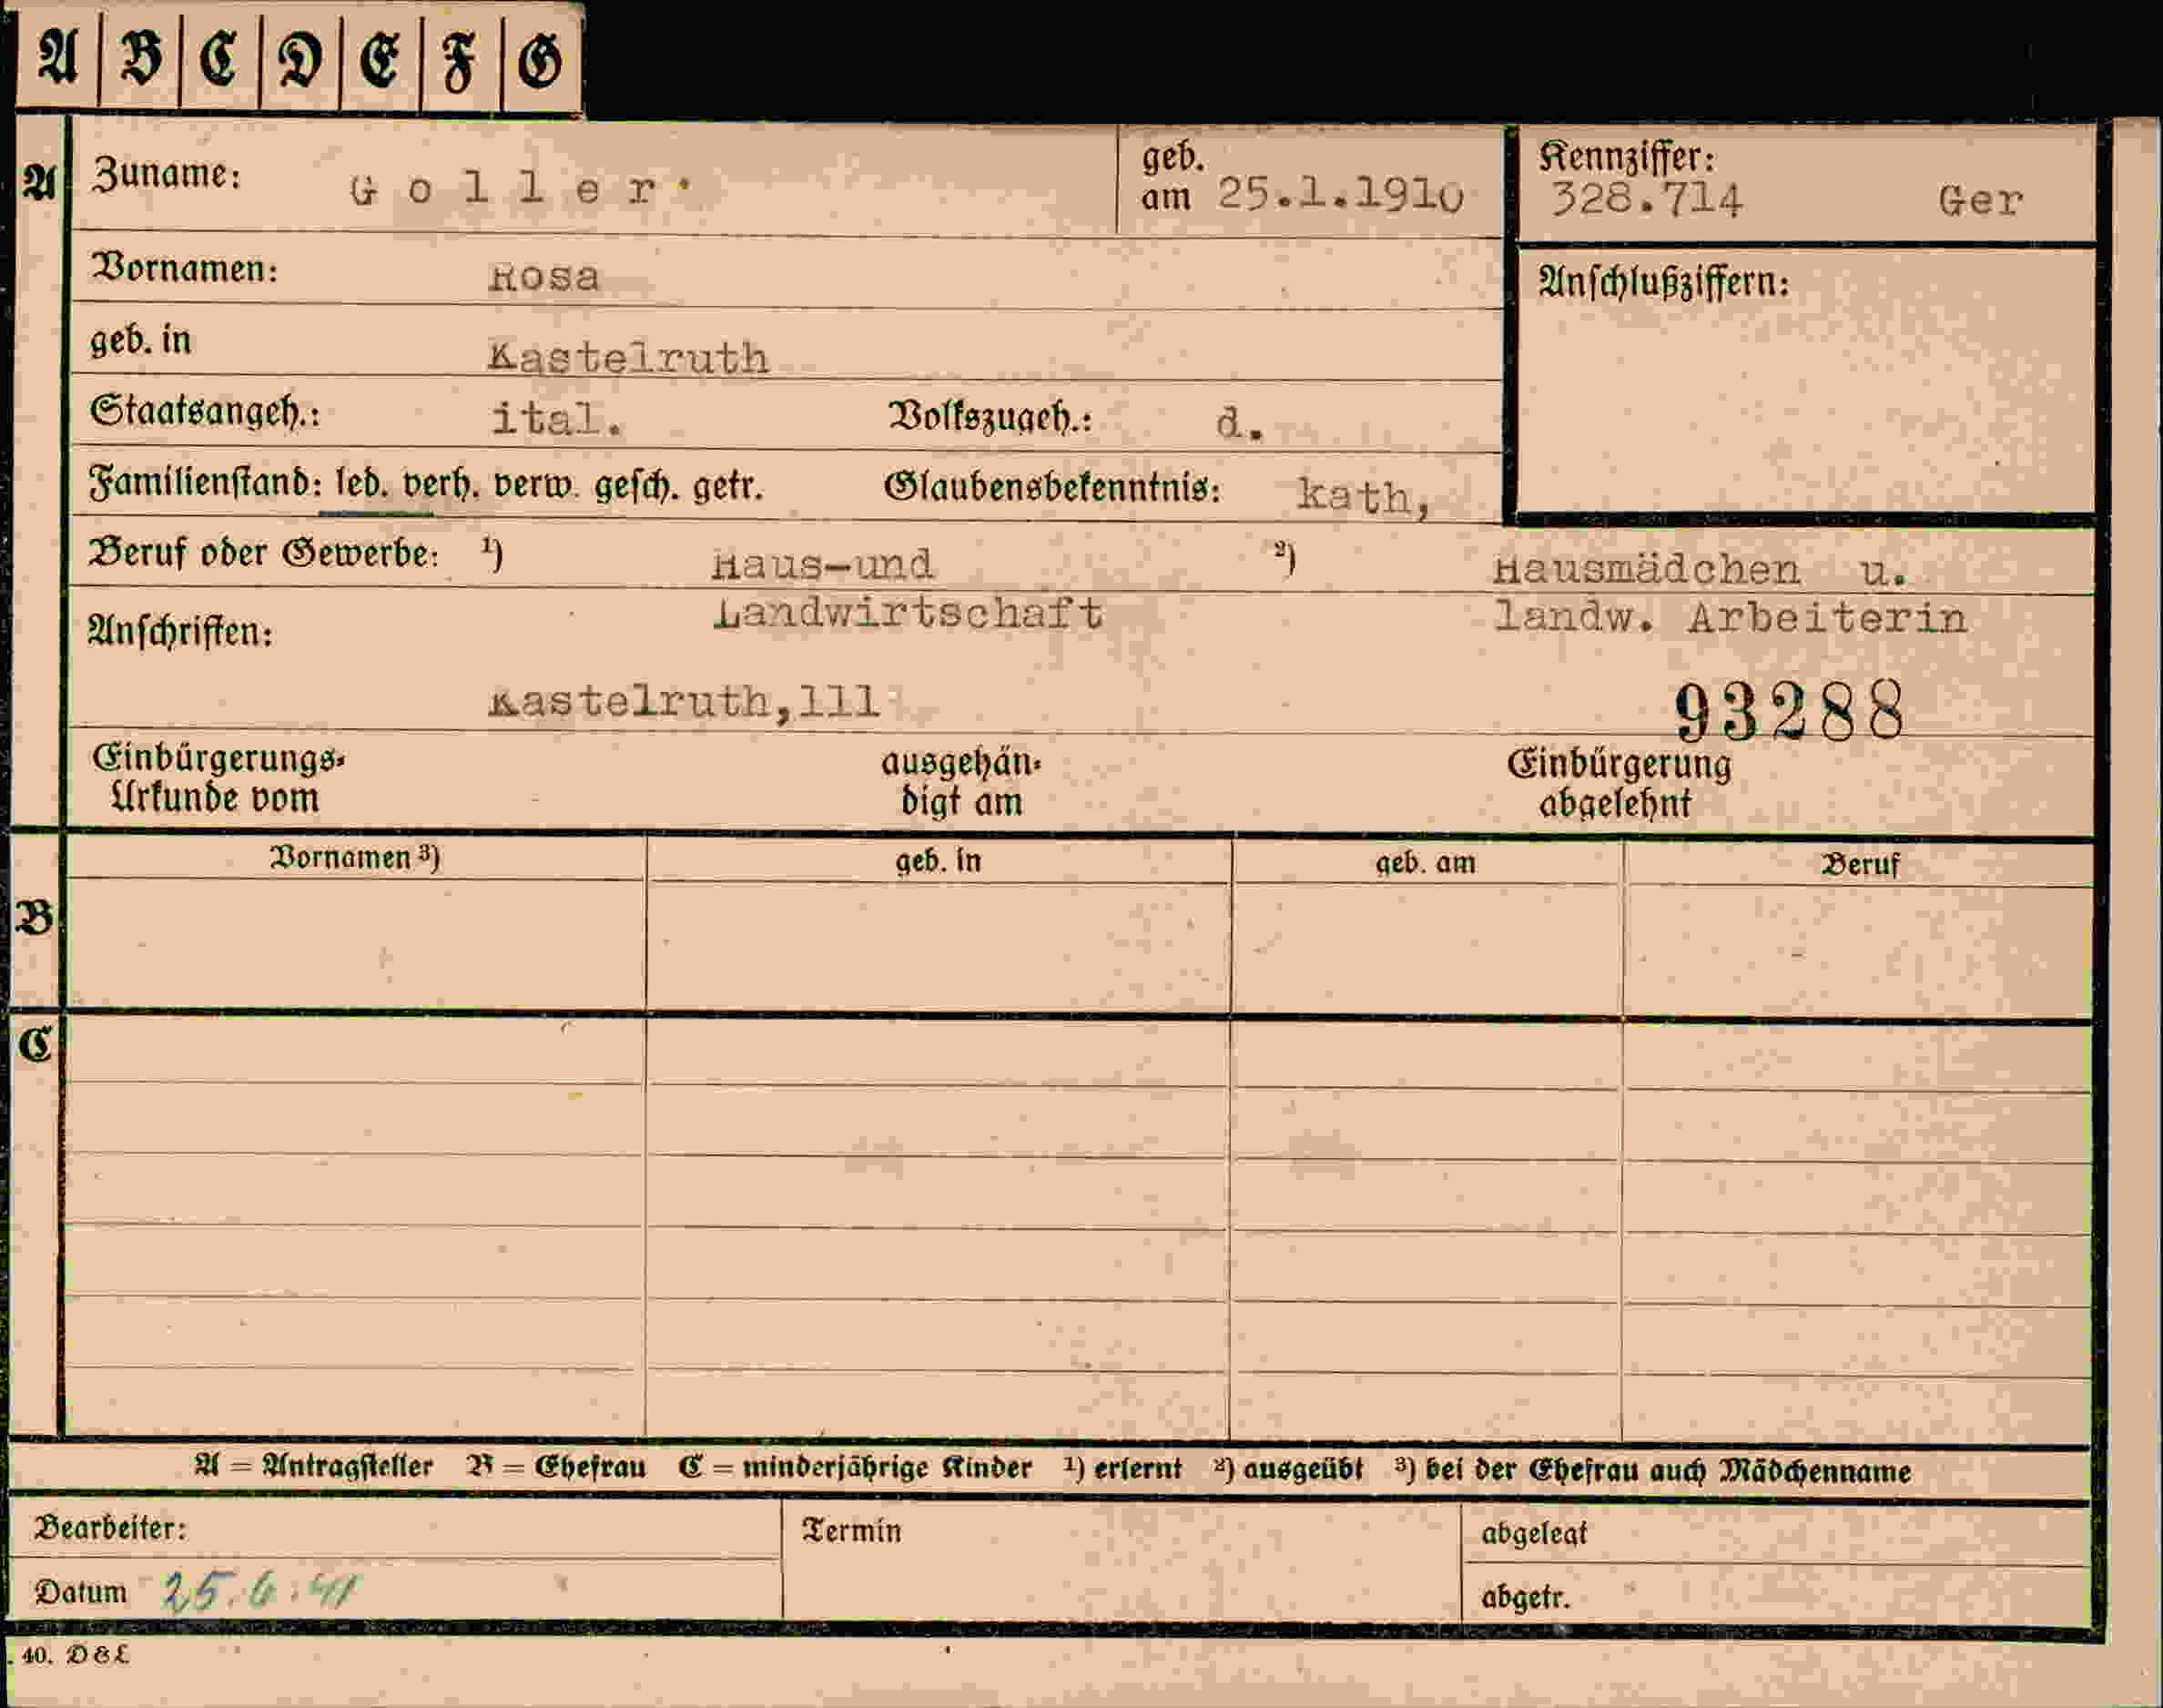 A B C D E F G
A Zuname: Goller geb. am 25.1.1910 Kennziffer: 328.714 Ger
Vornamen: Rosa Anschlußziffern:
geb. in Kastelruth
Staatsangeh.: ital. Volkszugeh.: d.
Familienstand: led. verh. verw. gesch. getr. Glaubensbekenntnis: kath,
Beruf oder Gewerbe: ¹) Haus-und ²) Hausmädchen u.
Landwirtschaft landw. Arbeiterin
Anschriften:
Kastelruth,111 93288
Einbürgerungs- ausgehän- Einbürgerung
Urkunde vom digt am abgelehnt
Vornamen ³) geb. in geb. am Beruf
B
C
A = Antragsteller B = Ehefrau C = minderjährige Kinder ¹) erlernt ²) ausgeübt ³) bei der Ehefrau auch Mädchenname
Bearbeiter: Termin abgelegt
Datum 25.6.41 abgetr.
. 40. D & L